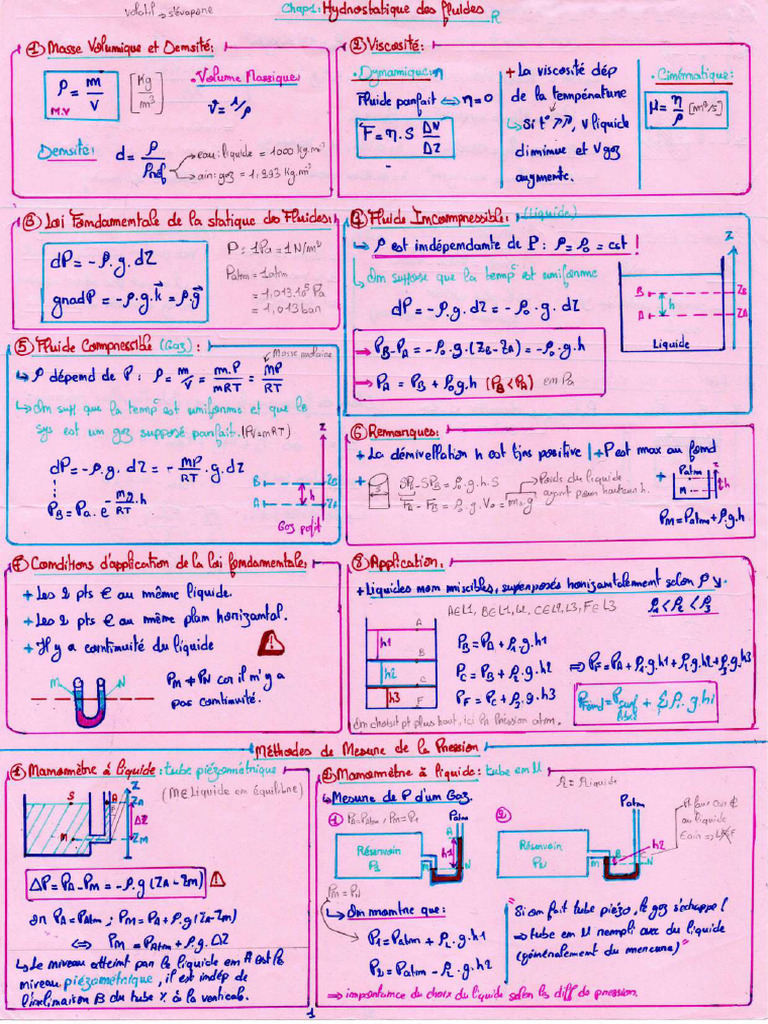 volatil → s'évapore
Chap1: Hydrostatique des fluides
① Masse Volumique et Densité:
ρ = m/V
M.V
[Kg/m³]
. Volume Massique:
v = 1/ρ
Densité:
d = ρ/ρréf
→ eau: liquide = 1000 kg.m⁻³
→ air: gaz = 1,293 kg.m⁻³
② Viscosité:
. Dynamique: η
Fluide parfait ⇔ η=0
F = η.S ΔV/ΔZ
+ La viscosité dép
de la température
↳ Si t° ↗↗, V liquide
diminue et V gaz
augmente.
. Cinématique:
μ = η/ρ [m²/s]
③ Loi Fondamentale de la statique des Fluides:
dP = -ρ.g.dZ
gradP = -ρ.g.k = ρ.g
P: 1Pa = 1N/m²
Patm = 1atm
= 1,013.10⁵ Pa
= 1,013 bar
④ Fluide Incompressible: (Liquide)
↳ ρ est indépendante de P: ρ = ρ0 = cst !
↳ On suppose que la temp° est uniforme
dP = -ρ.g.dZ = -ρ0.g.dZ
→ PB-PA = -ρ0.g.(ZB-ZA) = -ρ0.g.h
→ PA = PB + ρ0g.h (PB<PA) en Pa
Z
B
h
A
ZB
ZA
Liquide
⑤ Fluide Compressible (Gaz):
↳ ρ dépend de P: ρ = m/V = m.P/mRT = MP/RT
Masse molaire
↳ On supp que la temp° est uniforme et que le
sys est un gaz supposé parfait. (PV=mRT)
dP = -ρ.g.dZ = - MP/RT .g.dZ
PB = PA.e^(-Mg.h/RT)
Z
B
h
A
ZB
ZA
Gaz parfait
⑥ Remarques:
+ La dénivellation h est tjrs positive | + P est max au fond
+ SPA-SPB = ρ0.g.h.S
FA - FB = ρ0.g.V0 = m0.g
→ Poids du liquide
ayant pour hauteur h.
+ Patm
M
h
PM = Patm + ρ.g.h
⑦ Conditions d'application de la loi fondamentale:
+ Les 2 pts ∈ au même liquide.
+ Les 2 pts ∈ au même plan horizontal.
+ Il y a continuité du liquide
M
N
PM ≠ PN car il n'y a
pas continuité.
⑧ Application:
+ Liquides non miscibles, superposés horizontalement selon ρ ↘.
A∈L1, B∈L1,L2, C∈L2,L3, F∈L3
ρ1<ρ2<ρ3
A
h1
B
h2
C
h3
F
PB = PA + ρ1.g.h1
PC = PB + ρ2.g.h2
PF = PC + ρ3.g.h3
⇒ PF = PA + ρ1.g.h1 + ρ2.g.h2 + ρ3.g.h3
Pfond = Psurf libre + Σρi.g.hi
On choisit pt plus haut, ici la Pression atm.
Méthodes de Mesure de la Pression
① Manomètre à liquide: tube piézométrique
(M∈ Liquide en équilibre)
S
A
Z
ZA
ΔZ
M
ZM
ΔP = PA-PM = -ρ.g(ZA-ZM)
on PA = Patm; PM = PA + ρ.g(ZA-ZM)
⇔ PM = PAtm + ρ.g.ΔZ
↳ Le niveau atteint par le liquide en A est le
niveau piézométrique, il est indép de
l'inclinaison β du tube % à la verticale.
② Manomètre à liquide: tube en U
↳ Mesure de P d'un Gaz.
① PA=Patm; PM=PN
Réservoir
Patm
A
h1
M
N
PM = PN
②
Patm
Réservoir
PN
M
B
N
h2
↳ On montre que:
P1 = Patm + ρL.g.h1
P2 = Patm - ρL.g.h2
"Si on fait tube piézo, le gaz s'échappe!
⇒ tube en U rempli avec du liquide
(généralement du mercure)"
⇒ importance du choix du liquide selon les diff de pression.
1